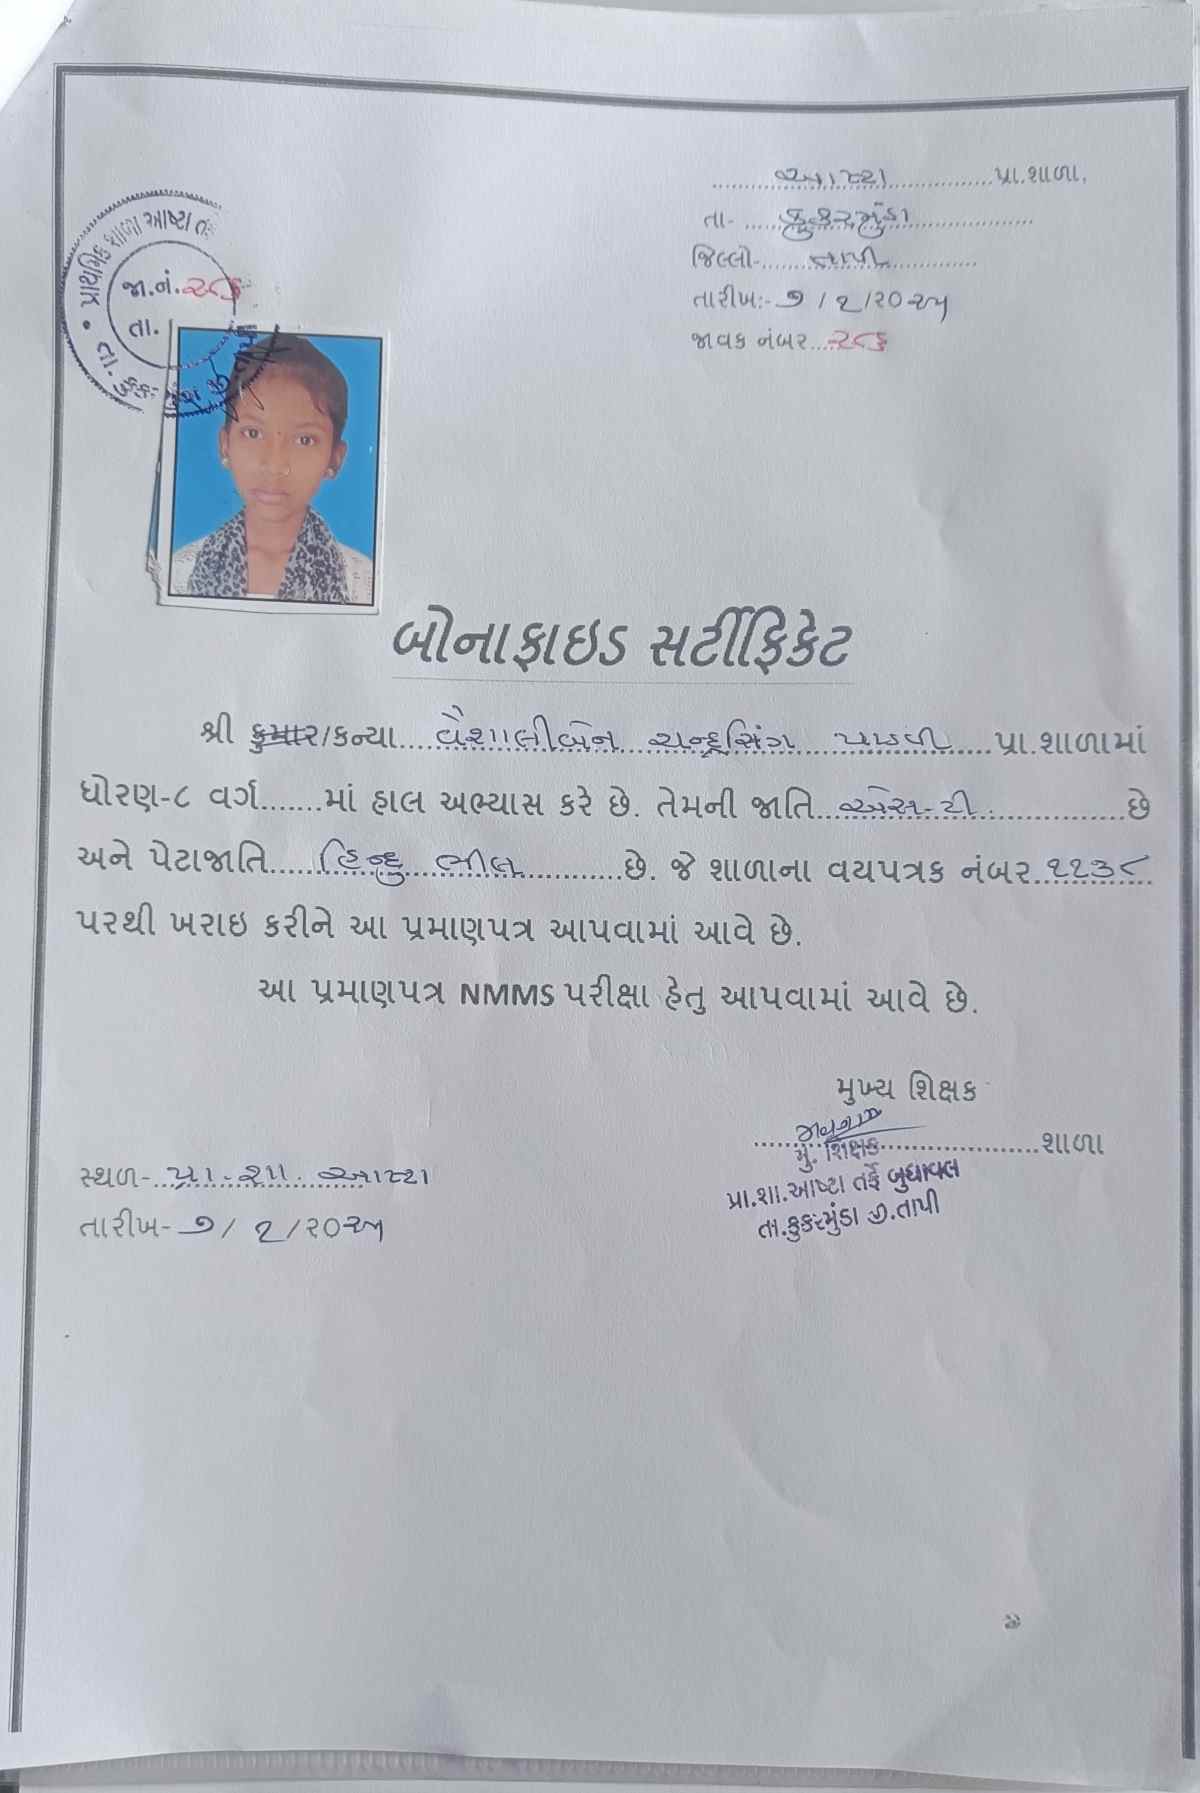 આષ્ટા પ્રા.શાળા.
તા- કુકરમુંડા
જિલ્લો- તાપી
તારીખ:- ૭/૨/૨૦૨૫
જાવક નંબર ૨૮૬
પ્રાથમિક શાળા આષ્ટા ત
જા.નં. ૨૮૬
તા.
બોનાફાઇડ સર્ટીફિકેટ
શ્રી કુમાર/કન્યા વૈશાલીબેન ચન્દ્રસિંગ પાડવી પ્રા.શાળામાં
ધોરણ-૮ વર્ગ.......માં હાલ અભ્યાસ કરે છે. તેમની જાતિ એસ-ટી છે
અને પેટાજાતિ હિન્દુ ભીલ છે. જે શાળાના વયપત્રક નંબર ૧૧૩૮
પરથી ખરાઇ કરીને આ પ્રમાણપત્ર આપવામાં આવે છે.
આ પ્રમાણપત્ર NMMS પરીક્ષા હેતુ આપવામાં આવે છે.
મુખ્ય શિક્ષક
શાળા
મુ. શિક્ષક
પ્રા.શા.આષ્ટા તર્ફે બુધાવલ
તા.કુકરમુંડા જી.તાપી
સ્થળ- પ્રા.શા. આષ્ટા
તારીખ- ૭/૨/૨૦૨૫